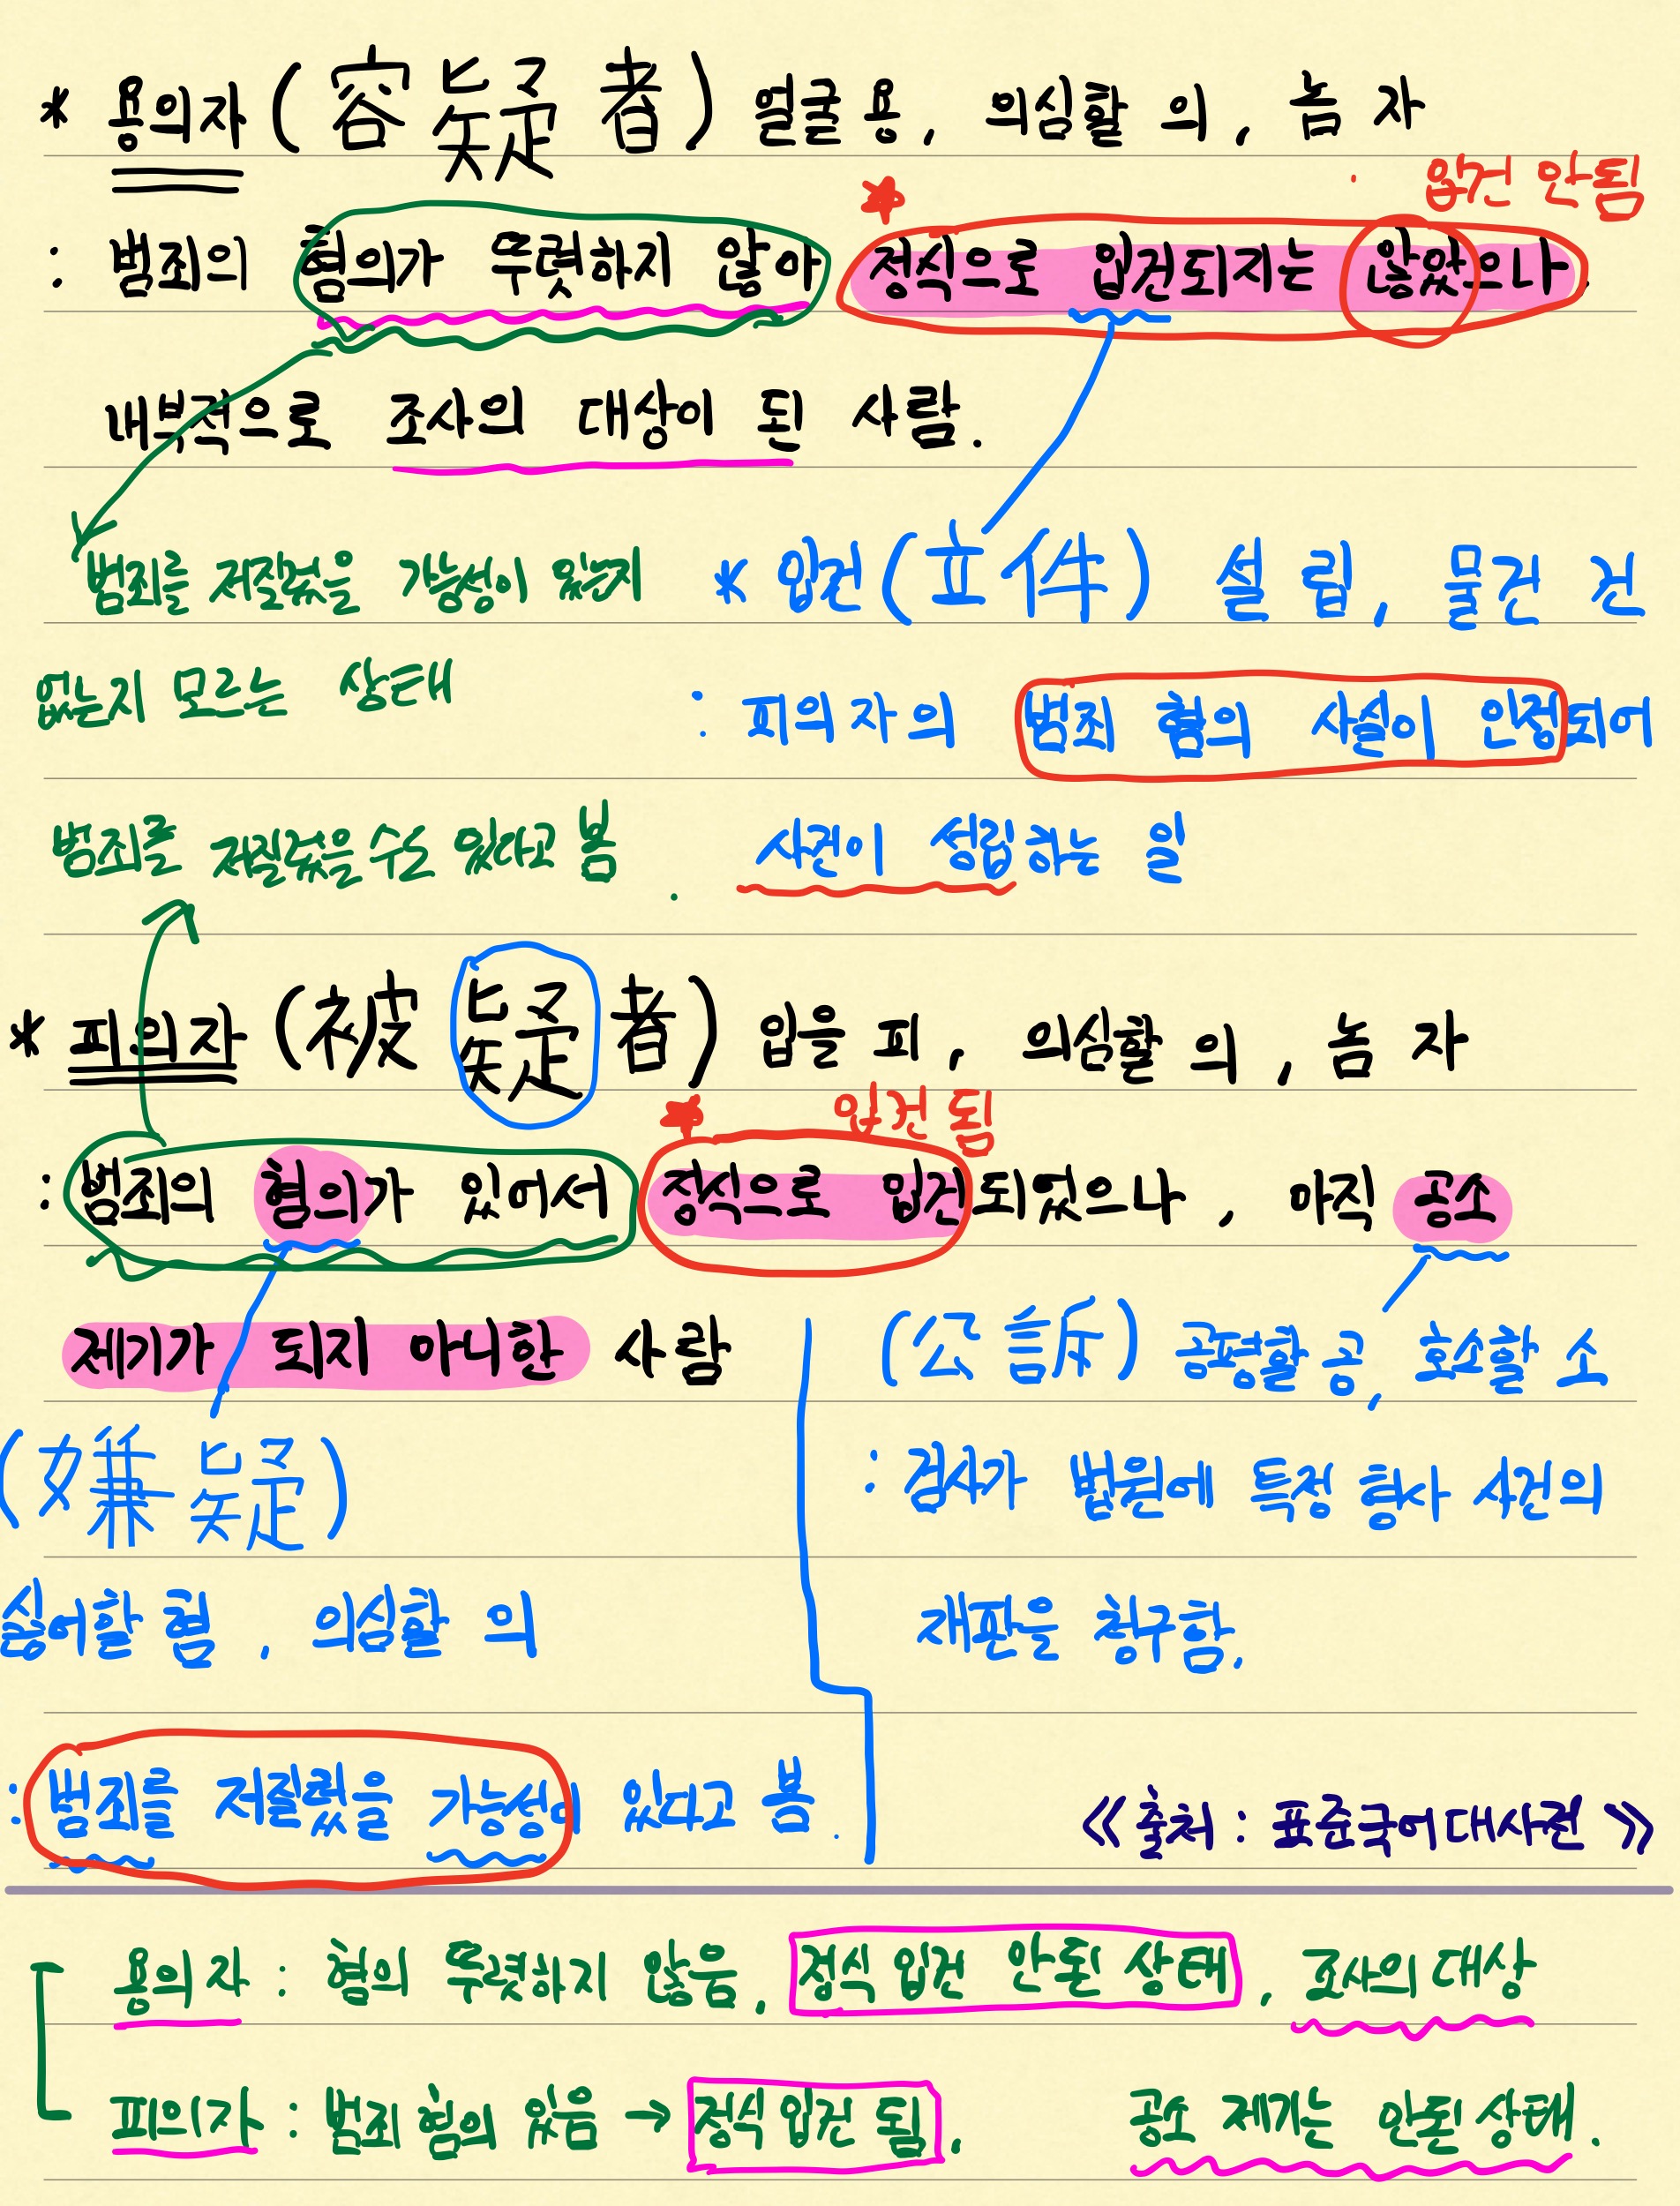 * 용의자 (容疑者) 얼굴 용, 의심할 의, 놈 자
입건 안됨
: 범죄의 혐의가 뚜렷하지 않아 정식으로 입건되지는 않았으나
내부적으로 조사의 대상이 된 사람.
범죄를 저질렀을 가능성이 있는지
없는지 모르는 상태
* 입건(立件) 설 립, 물건 건
: 피의자의 범죄 혐의 사실이 인정되어
사건이 성립하는 일
범죄를 저질렀을 수도 있다고 봄.
* 피의자 (被疑者) 입을 피, 의심할 의, 놈 자
입건 됨
: 범죄의 혐의가 있어서 정식으로 입건되었으나, 아직 공소
제기가 되지 아니한 사람
(嫌疑)
싫어할 혐, 의심할 의
: 범죄를 저질렀을 가능성이 있다고 봄.
(公訴) 공평할 공, 호소할 소
: 검사가 법원에 특정 형사 사건의
재판을 청구함.
《출처 : 표준국어대사전》
용의자 : 혐의 뚜렷하지 않음, 정식 입건 안된 상태, 조사의 대상
피의자 : 범죄 혐의 있음 → 정식 입건 됨, 공소 제기는 안된 상태.